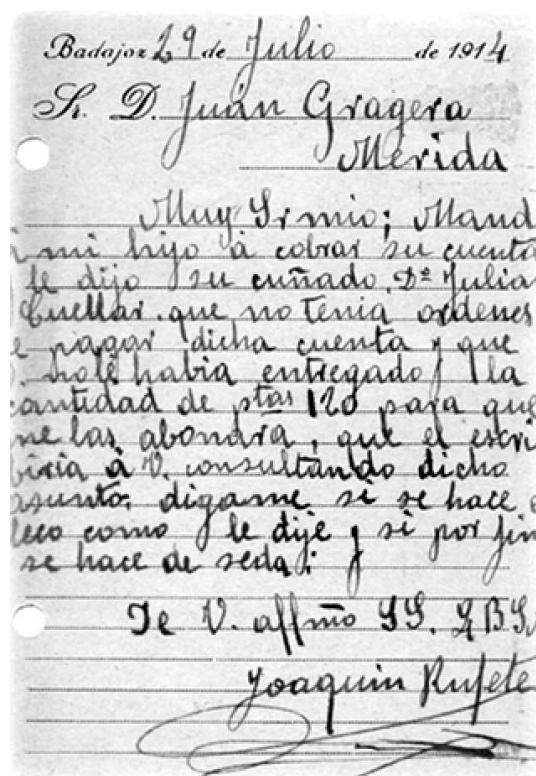 Badajoz 29 de Julio de 1914
Sr. D. Juán Gragera
Mérida
Muy Sr mio; Mand
mi hijo á cobrar su cuenta
le dijo su cuñado, Dn Julia
Cuellar que no tenia ordenes
e pagar dicha cuenta y que
V. no le habia entregado la
cantidad de ptas 120 para que
me las abonára, que el escri
biria á V. consultando dicho
asunto, digame si se hace e
leco como le dije y si por fin
se hace de seda;
De V. affmo SS. Q B S
Joaquin Rufete